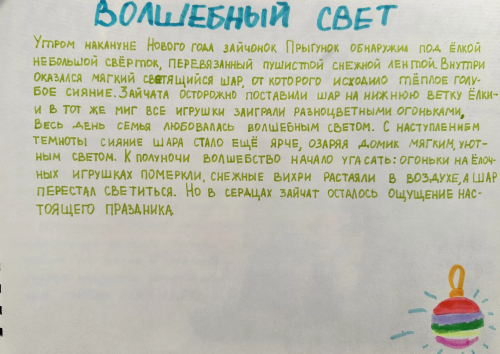 ВОЛШЕБНЫЙ СВЕТ
УТРОМ НАКАНУНЕ НОВОГО ГОДА ЗАЙЧОНОК ПРЫГУНОК ОБНАРУЖИЛ ПОД ЁЛКОЙ
НЕБОЛЬШОЙ СВЁРТОК, ПЕРЕВЯЗАННЫЙ ПУШИСТОЙ СНЕЖНОЙ ЛЕНТОЙ. ВНУТРИ
ОКАЗАЛСЯ МЯГКИЙ СВЕТЯЩИЙСЯ ШАР, ОТ КОТОРОГО ИСХОДИЛО ТЁПЛОЕ ГОЛУ-
БОЕ СИЯНИЕ. ЗАЙЧАТА ОСТОРОЖНО ПОСТАВИЛИ ШАР НА НИЖНЮЮ ВЕТКУ ЁЛКИ-
И В ТОТ ЖЕ МИГ ВСЕ ИГРУШКИ ЗАИГРАЛИ РАЗНОЦВЕТНЫМИ ОГОНЬКАМИ.
ВЕСЬ ДЕНЬ СЕМЬЯ ЛЮБОВАЛАСЬ ВОЛШЕБНЫМ СВЕТОМ. С НАСТУПЛЕНИЕМ
ТЕМНОТЫ СИЯНИЕ ШАРА СТАЛО ЕЩЁ ЯРЧЕ, ОЗАРЯЯ ДОМИК МЯГКИМ, УЮТ-
НЫМ СВЕТОМ. К ПОЛУНОЧИ ВОЛШЕБСТВО НАЧАЛО УГАСАТЬ: ОГОНЬКИ НА ЁЛОЧ-
НЫХ ИГРУШКАХ ПОМЕРКЛИ, СНЕЖНЫЕ ВИХРИ РАСТАЯЛИ В ВОЗДУХЕ, А ШАР
ПЕРЕСТАЛ СВЕТИТЬСЯ. НО В СЕРДЦАХ ЗАЙЧАТ ОСТАЛОСЬ ОЩУЩЕНИЕ НАС-
ТОЯЩЕГО ПРАЗДНИКА.